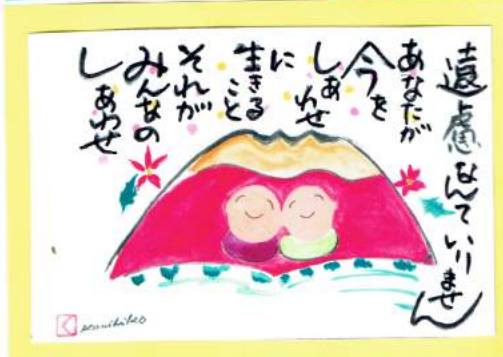 遠慮なんていりません
あなたが
今を
しあわせ
に
生きる
こと
それが
みんなの
しあわせ